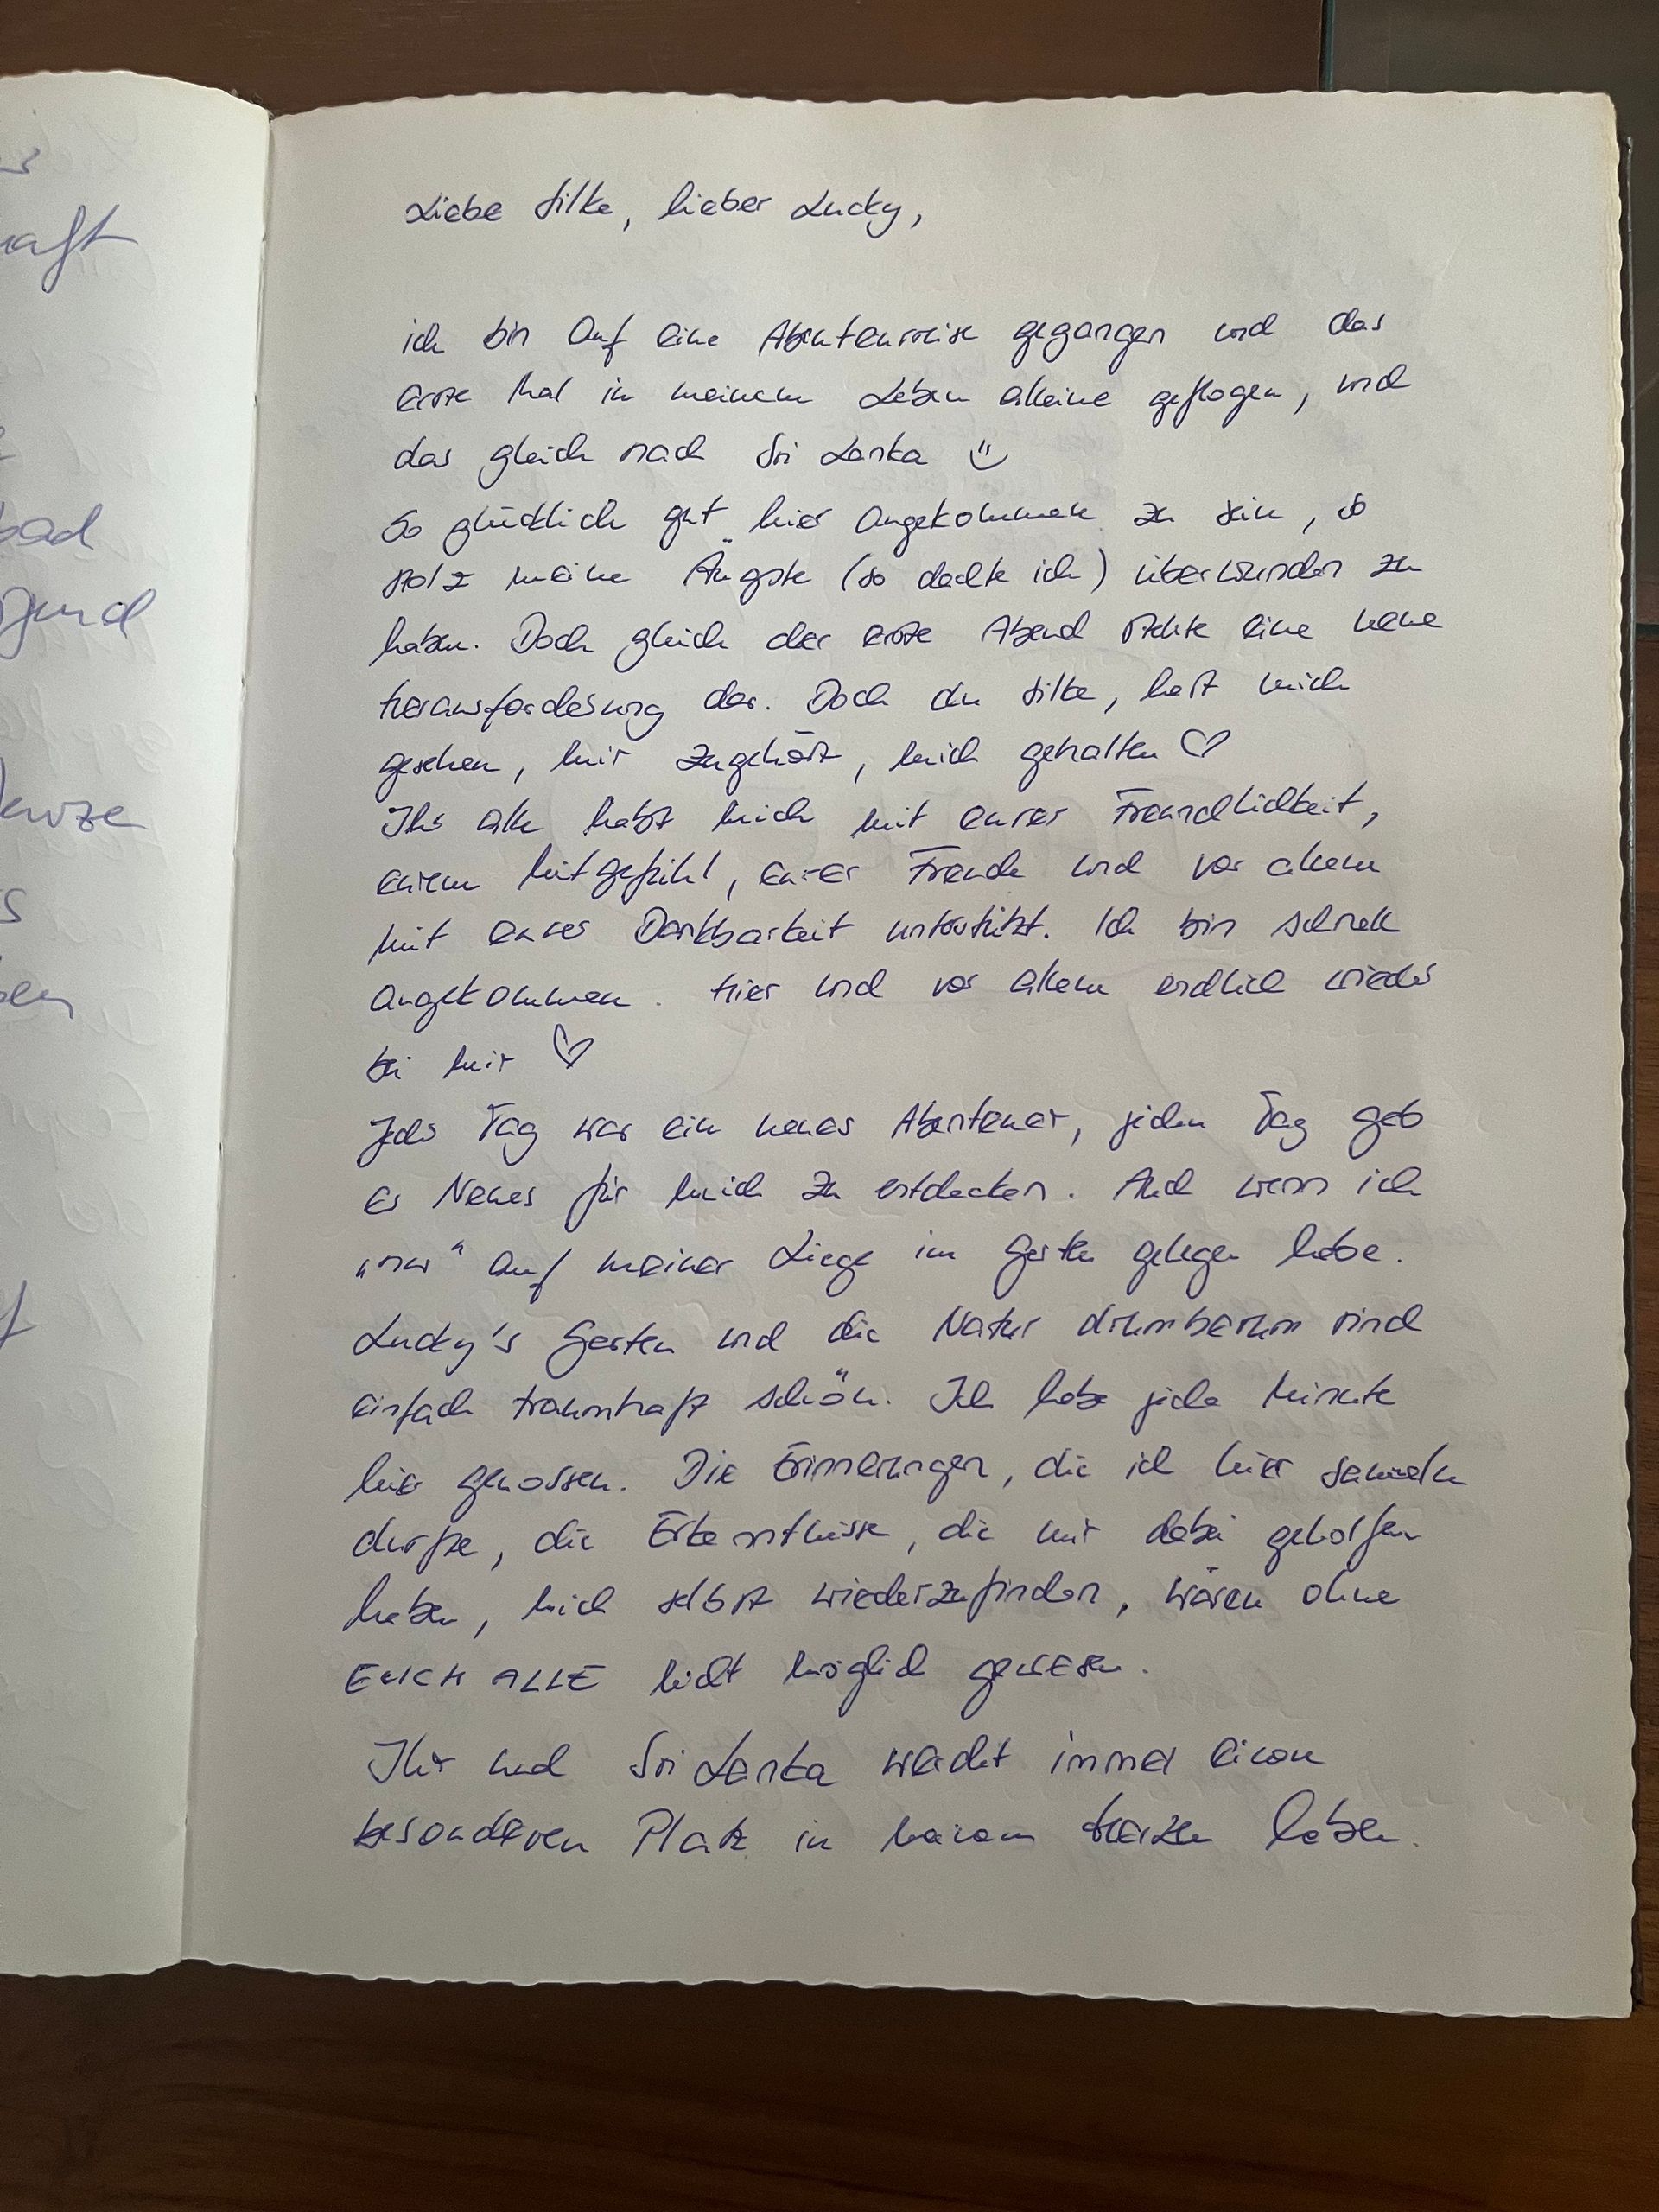 aft
bad
Liebe Silke, lieber Lucky,
ich bin auf eine Abenteuerreise gegangen und das
erste Mal in meinem Leben alleine geflogen, und
das gleich nach Sri Lanka
So glücklich gut hier angekommen zu sein, so
stolz meine Ängste (so dachte ich) überwunden zu
haben. Doch gleich der erste Abend stellte eine neue
Herausforderung dar. Doch du Silke, hast mich
gesehen, mir zugehört, mich gehalten ♡
Ihr alle habt mich mit eurer Freundlichkeit,
eurem Mitgefühl, eurer Freude und vor allem
mit eurer Dankbarkeit unterstützt. Ich bin schnell
angekommen. Hier und vor allem endlich wieder
bei mir ♡
Jeder Tag war ein neues Abenteuer, jeden Tag gab
es Neues für mich zu entdecken. Auch wenn ich
„nur“ auf meiner Liege im Garten gelegen habe.
Lucky's Garten und die Natur drumherum sind
einfach traumhaft schön. Ich habe jede Minute
hier genossen. Die Erinnerungen, die ich hier sammeln
durfte, die Erkenntnisse, die mir dabei geholfen
haben, mich selbst wiederzufinden, wären ohne
EUCH ALLE nicht möglich gewesen.
Ihr und Sri Lanka werdet immer einen
besonderen Platz in meinem Herzen haben.